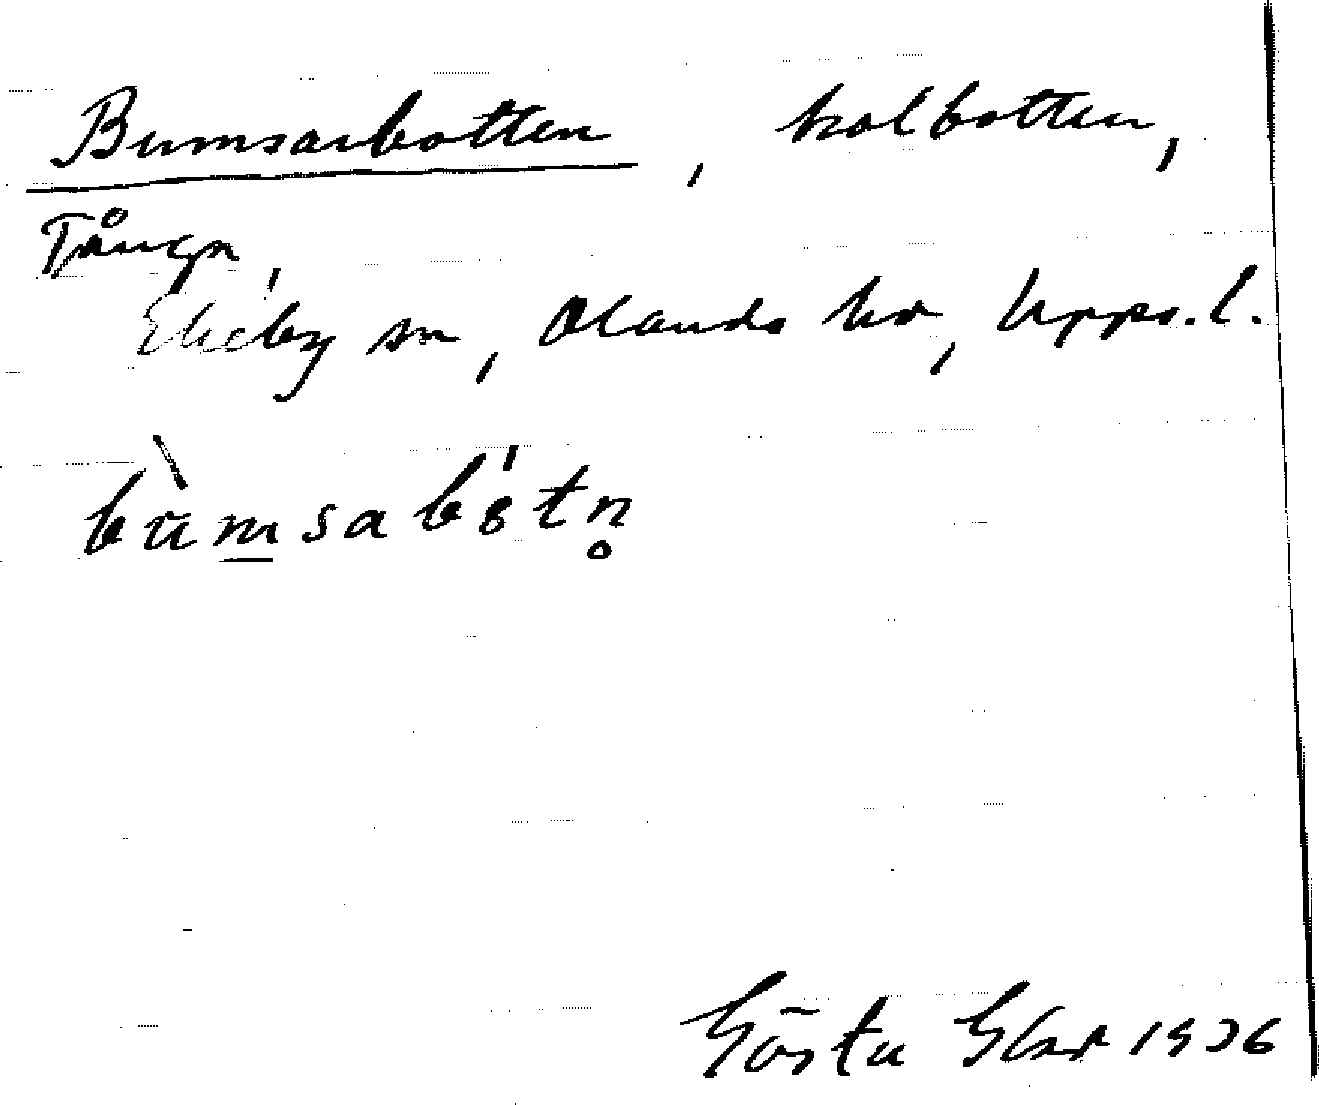 Bumsarbotten, kolbotten,
Tången,
Ekeby sn, Olands hd, Upps. l.
bùmsabòtn̥
Gösta 1936